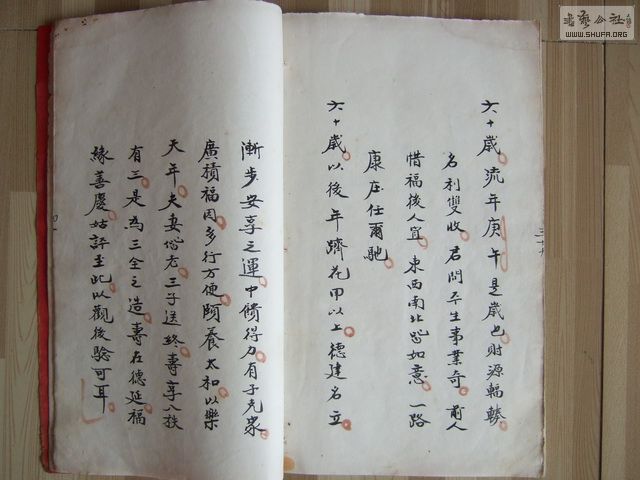 六十歲流年庚午是歲也財源輻輳
名利雙收君問平生事業奇前人
惜福後人宜東西南北皆如意一路
康庄任爾馳
六十歲以後年躋花甲以上德建名立
漸步安享之運中饋得力有子克家
廣積福因多行方便頤養太和以樂
天年夫妻偕老三子送終壽享八秩
有三是為三全之造壽在德延福
緣善慶姑評至此以觀後驗可耳
書藝公社
WWW.SHUFA.ORG